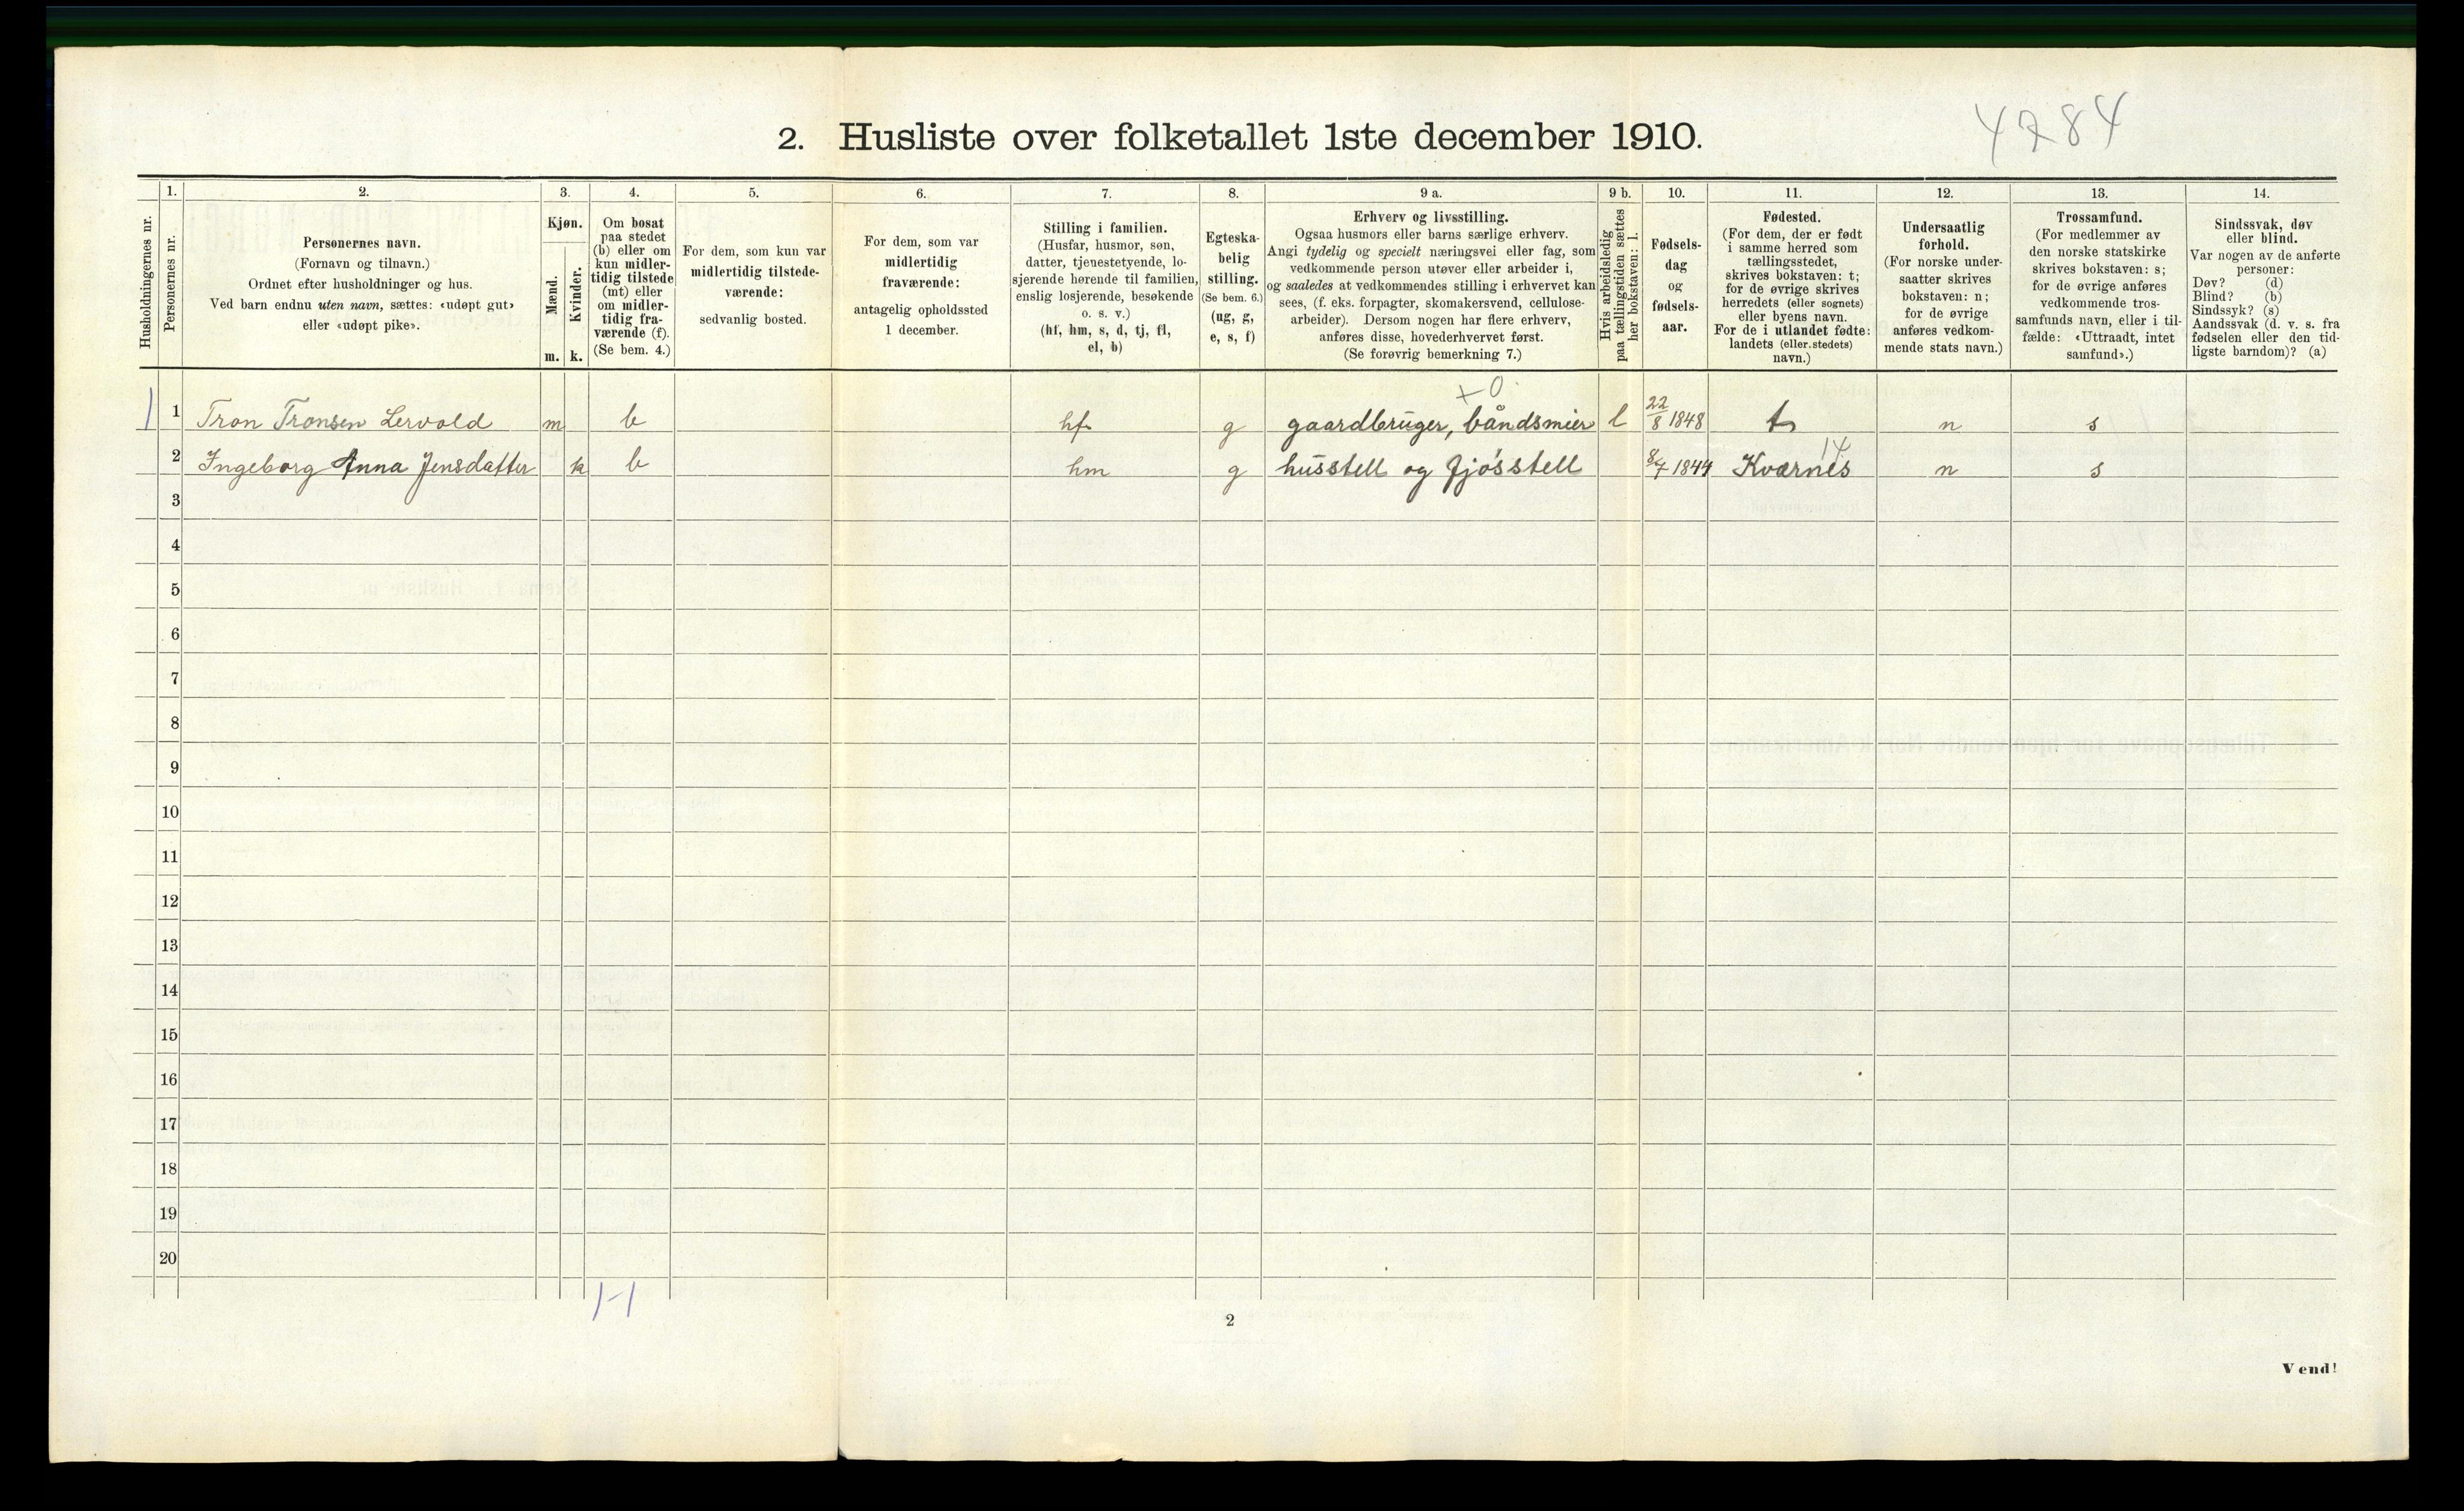 4284
2. Husliste over folketallet 1ste december 1910.
1. 2. 3. 4. 5. 6. 7. 8. 9 a. 9 b. 10. 11. 12. 13. 14.
Husholdningernes nr.
Personernes nr.
Personernes navn.
(Fornavn og tilnavn.)
Ordnet efter husholdninger og hus.
Ved barn endnu uten navn, sættes: «udøpt gut»
eller «udøpt pike».
Kjøn.
Mænd.
Kvinder.
m. k.
Om bosat
paa stedet
(b) eller om
kun midler-
tidig tilstede
(mt) eller
om midler-
tidig fra-
værende (f).
(Se bem. 4.)
For dem, som kun var
midlertidig tilstede-
værende:
sedvanlig bosted.
For dem, som var
midlertidig
fraværende:
antagelig opholdssted
1 december.
Stilling i familien.
(Husfar, husmor, søn,
datter, tjenestetyende, lo-
sjerende hørende til familien,
enslig losjerende, besøkende
o. s. v.)
(hf, hm, s, d, tj, fl,
el, b)
Egteska-
belig
stilling.
(Se bem. 6.)
(ug, g,
e, s, f)
Erhverv og livsstilling.
Ogsaa husmors eller barns særlige erhverv.
Angi tydelig og specielt næringsvei eller fag, som
vedkommende person utøver eller arbeider i,
og saaledes at vedkommendes stilling i erhvervet kan
sees, (f. eks. forpagter, skomakersvend, cellulose-
arbeider). Dersom nogen har flere erhverv,
anføres disse, hovederhvervet først.
(Se forøvrig bemerkning 7.)
Hvis arbeidsledig
paa tællingstiden sættes
her bokstaven: l.
Fødsels-
dag
og
fødsels-
aar.
Fødested.
(For dem, der er født
i samme herred som
tællingsstedet,
skrives bokstaven: t;
for de øvrige skrives
herredets (eller sognets)
eller byens navn.
For de i utlandet fødte:
landets (eller stedets)
navn.)
Undersaatlig
forhold.
(For norske under-
saatter skrives
bokstaven: n;
for de øvrige
anføres vedkom-
mende stats navn.)
Trossamfund.
(For medlemmer av
den norske statskirke
skrives bokstaven: s;
for de øvrige anføres
vedkommende tros-
samfunds navn, eller i til-
fælde: «Uttraadt, intet
samfund».)
Sindssvak, døv
eller blind.
Var nogen av de anførte
personer:
Døv? (d)
Blind? (b)
Sindssyk? (s)
Aandssvak (d. v. s. fra
fødselen eller den tid-
ligste barndom)? (a)
+0
1 1 Tron Tronsen Lervold m b hf g gaardbruger, båndsmier l 22/8 1848 t n s
14
2 Ingeborg Anna Jensdatter k b hm g husstell og fjósstell 8/7 1844 Kværnes n s
3
4
5
6
7
8
9
10
11
12
13
14
15
16
17
18
19
20
1-1
2
Vend!